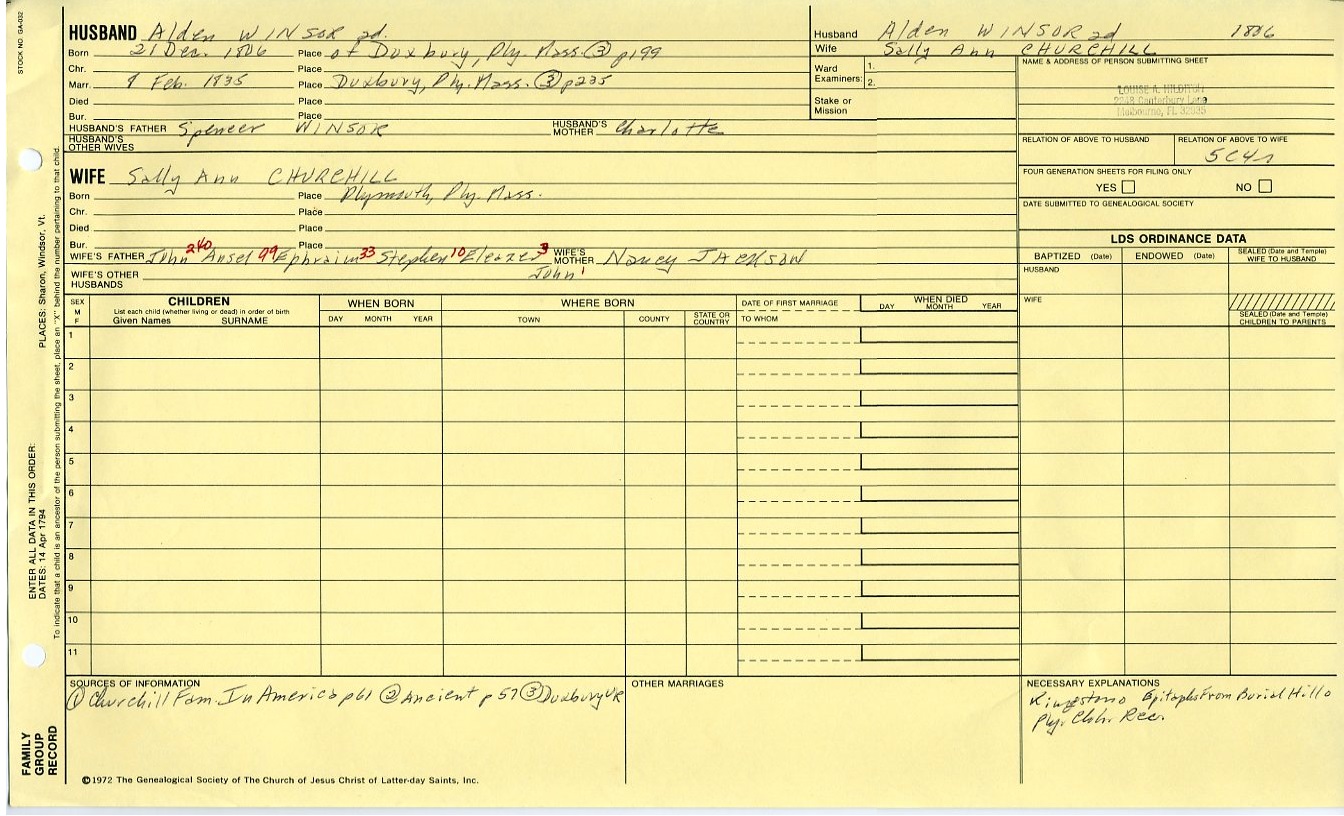 STOCK NO. GA-032
HUSBAND Alden WINSOR 2d.
Born 21 Dec. 1806 Place of Duxbury, Ply. Mass. ③ p199
Chr. Place
Marr. 8 Feb. 1835 Place Duxbury, Ply. Mass. ③ p235
Died Place
Bur. Place
HUSBAND'S FATHER Spencer WINSOR HUSBAND'S MOTHER Charlotte
HUSBAND'S OTHER WIVES
WIFE Sally Ann CHURCHILL
Born Place Plymouth, Ply. Mass.
Chr. Place
Died Place
Bur. Place
WIFE'S FATHER John 240 Ansel 99 Ephraim 33 Stephen 10 Eleazer 3 WIFE'S MOTHER Nancy JACKSON
John 1
WIFE'S OTHER HUSBANDS
Husband Alden WINSOR 2d 1806
Wife Sally Ann CHURCHILL
Ward Examiners: 1. 2.
Stake or Mission
NAME & ADDRESS OF PERSON SUBMITTING SHEET
LOUISE A. HILDITCH
2248 Canterbury Lane
Melbourne, FL 32935
RELATION OF ABOVE TO HUSBAND
RELATION OF ABOVE TO WIFE
5C4r
FOUR GENERATION SHEETS FOR FILING ONLY
YES NO
DATE SUBMITTED TO GENEALOGICAL SOCIETY
LDS ORDINANCE DATA
BAPTIZED (Date) ENDOWED (Date) SEALED (Date and Temple) WIFE TO HUSBAND
HUSBAND
WIFE
SEALED (Date and Temple) CHILDREN TO PARENTS
SEX M F
CHILDREN
List each child (whether living or dead) in order of birth
Given Names SURNAME
WHEN BORN
DAY MONTH YEAR
WHERE BORN
TOWN COUNTY STATE OR COUNTRY
DATE OF FIRST MARRIAGE
TO WHOM
WHEN DIED
DAY MONTH YEAR
1
2
3
4
5
6
7
8
9
10
11
SOURCES OF INFORMATION
① Churchill Fam. In America p61 ② Ancient p 57 ③ Duxbury VR
OTHER MARRIAGES
NECESSARY EXPLANATIONS
Epitaphs From Burial Hill
Ply. Chh. Rec.
©1972 The Genealogical Society of The Church of Jesus Christ of Latter-day Saints, Inc.
FAMILY GROUP RECORD
ENTER ALL DATA IN THIS ORDER:
DATES: 14 Apr 1794 PLACES: Sharon, Windsor, Vt.
To indicate that a child is an ancestor of the person submitting the sheet, place an "X" behind the number pertaining to that child.